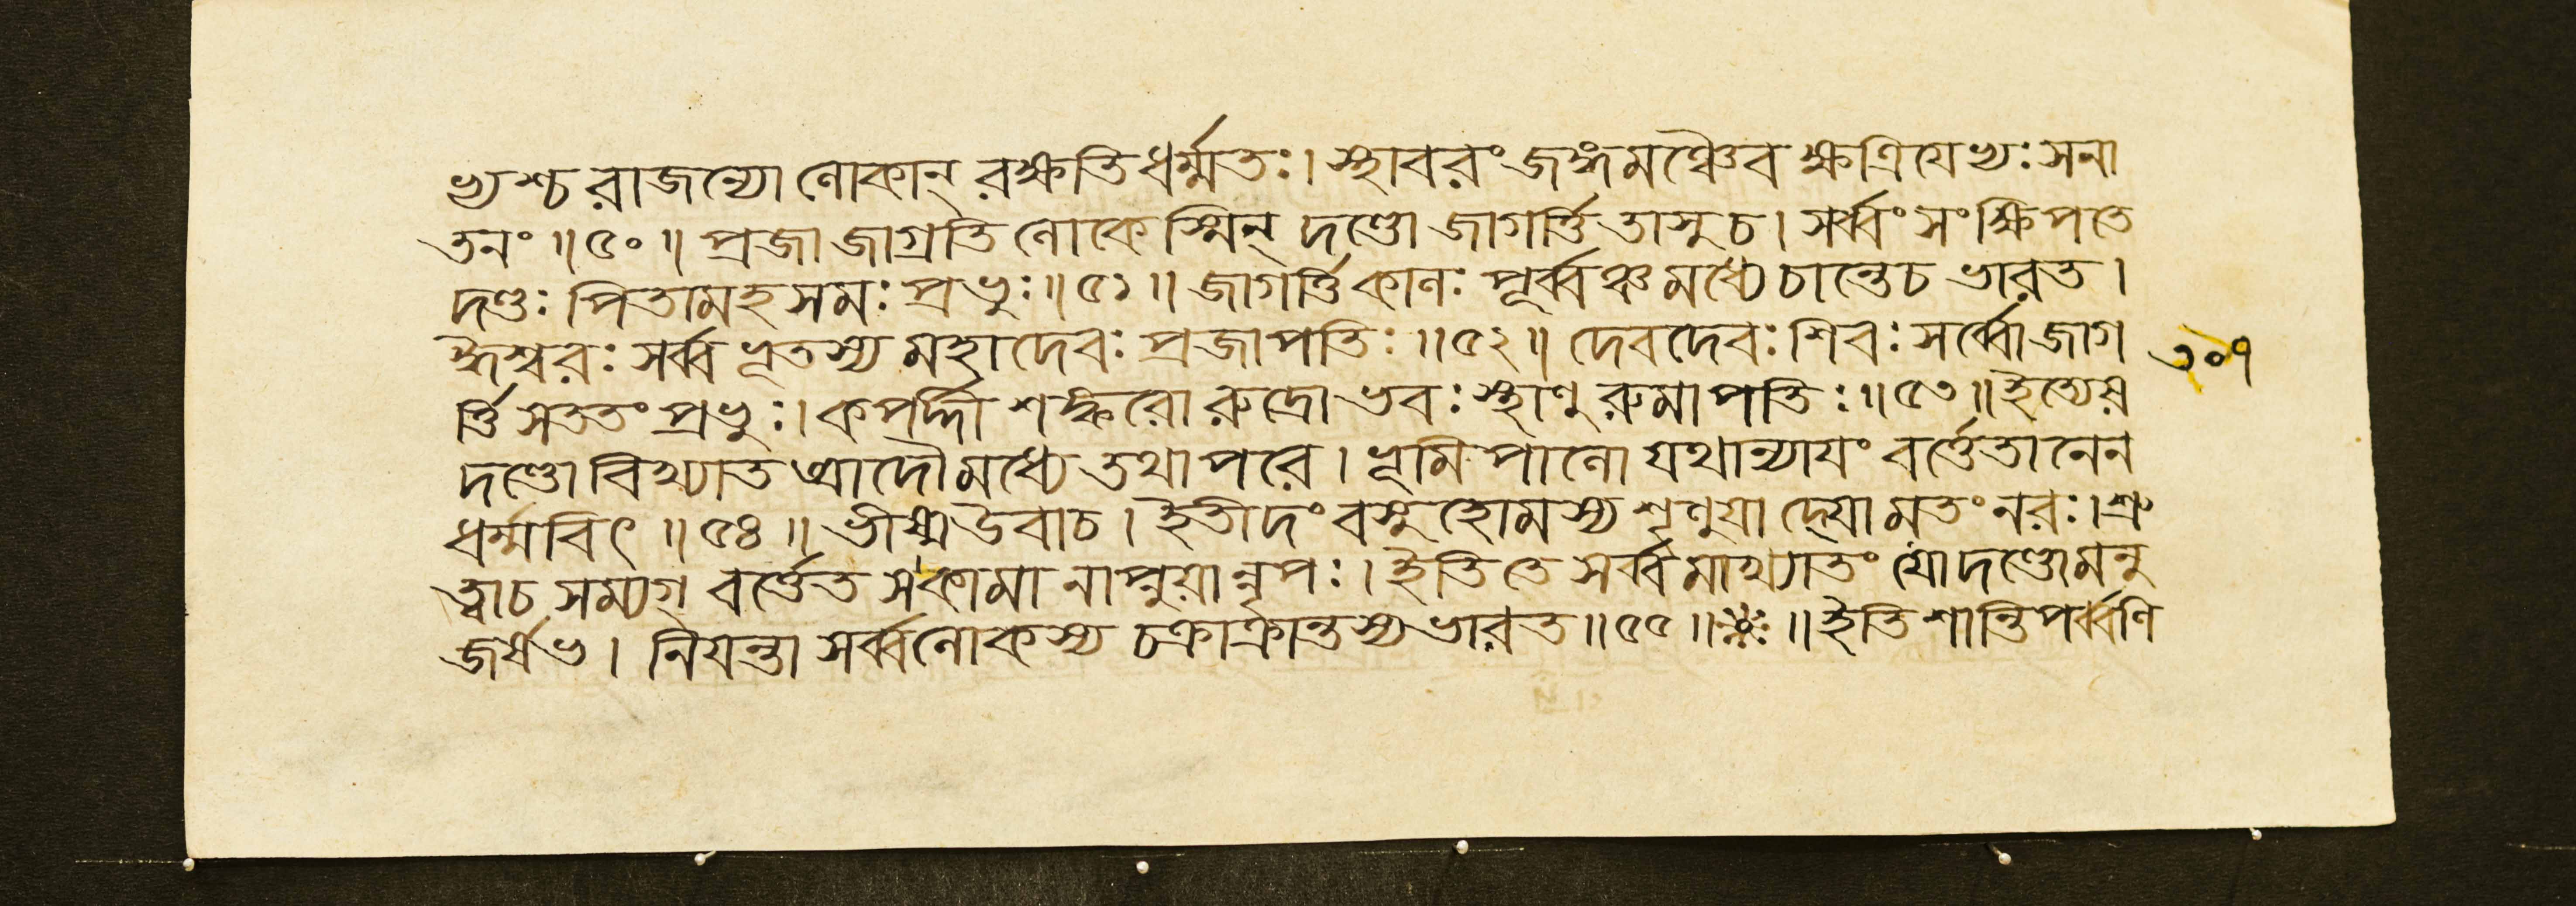 ভ্যশ্চ রাজন্যো লোকান্ রক্ষতি ধর্ম্মতঃ। স্থাবরং জঙ্গমঞ্চৈব ক্ষত্রিযেভ্যঃ সনা
তনং ॥৫০॥ প্রজা জাগ্রতি লোকেস্মিন্ দণ্ডো জাগর্ত্তি তাসু চ। সর্ব্বং সংক্ষিপতে
দণ্ডঃ পিতামহসমঃ প্রভুঃ॥৫১॥ জাগর্ত্তি কালঃ পূর্ব্বঞ্চ মধ্যে চান্তে চ ভারত।
ঈশ্বরঃ সর্ব্বভূতস্য মহাদেবঃ প্রজাপতিঃ॥৫২॥ দেবদেবঃ শিবঃ সর্ব্বো জাগ
র্ত্তি সততং প্রভুঃ। কপর্দ্দী শঙ্করো রুদ্রো ভবঃ স্থাণুরুমাপতিঃ॥৫৩॥ ইত্যেষ
দণ্ডো বিখ্যাত আদৌ মধ্যে তথাপরে। ভূমিপালো যথান্যাযং বর্ত্তেতানেন
ধর্ম্মবিৎ ॥৫৪॥ ভীষ্ম উবাচ। ইতীদং বসুহোমস্য শৃণুযাদ্যো মতং নরঃ। শ্রু
ত্বা চ সম্যগ্ বর্ত্তেত স কামানাপ্নুয়ান্নৃপঃ। ইতি তে সর্ব্বমাখ্যাতং যো দণ্ডো মনু
জর্ষভ। নিযন্তা সর্ব্বলোকস্য চক্রাক্রান্তস্য ভারত॥৫৫॥ ॥ইতি শান্তিপর্ব্বণি
৩০৭